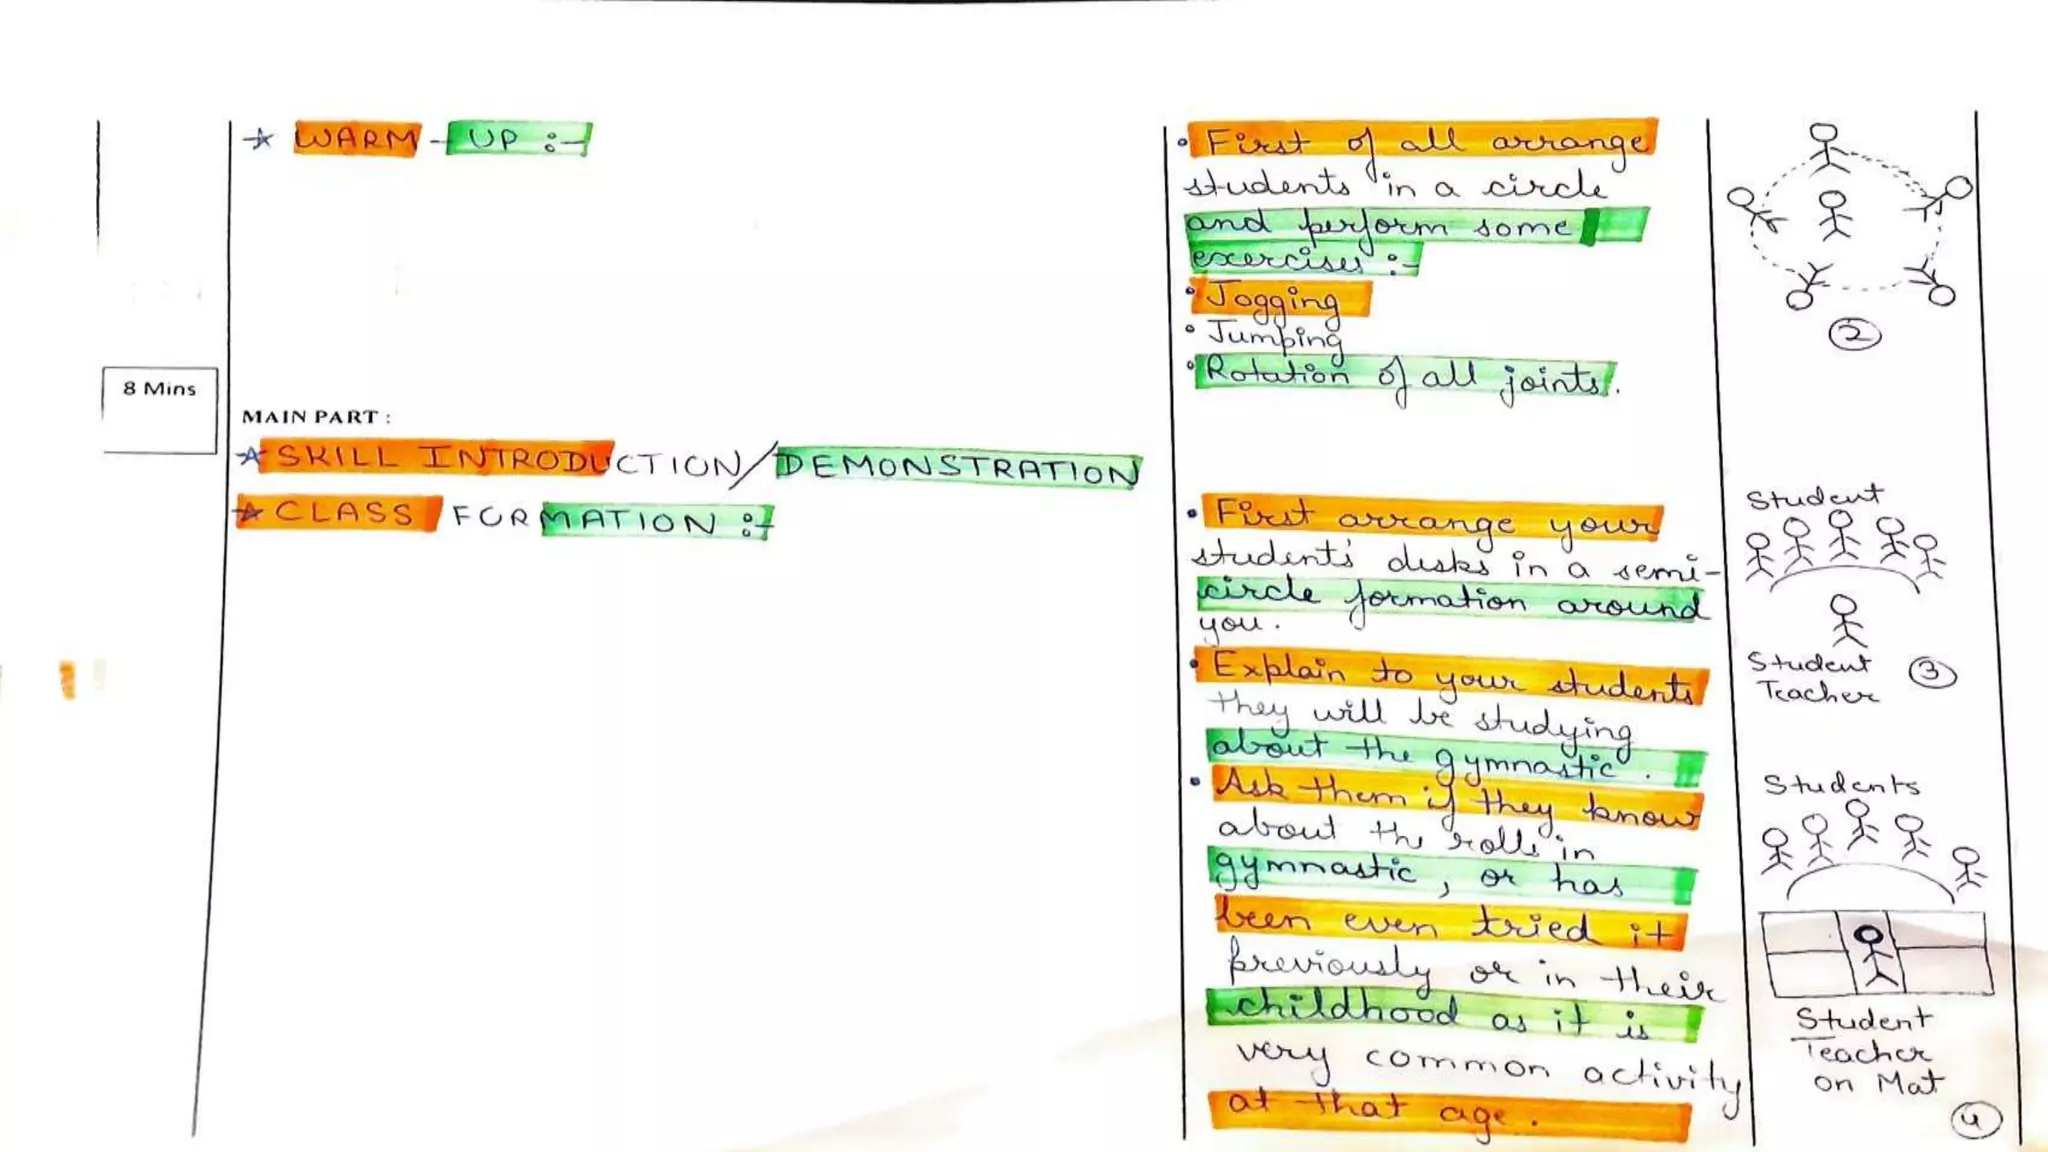 ☆ WARM - UP :-
8 Mins
MAIN PART :
☆ SKILL INTRODUCTION/DEMONSTRATION
☆ CLASS FORMATION :-
• First of all arrange
students in a circle
and perform some
exercises :-
• Jogging
• Jumping
• Rotation of all joints.
• First arrange your
students' disks in a semi-
circle formation around
you.
• Explain to your students
they will be studying
about the gymnastic.
• Ask them if they know
about the rolls in
gymnastic, or has
been even tried it
previously or in their
childhood as it is
very common activity
at that age.
2
Student
Student
Teacher
3
Students
Student
Teacher
on Mat
4